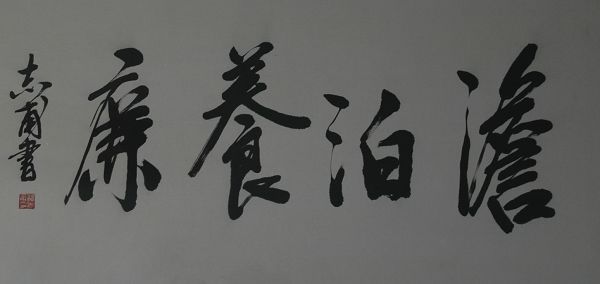 澹泊養廉
志甫書